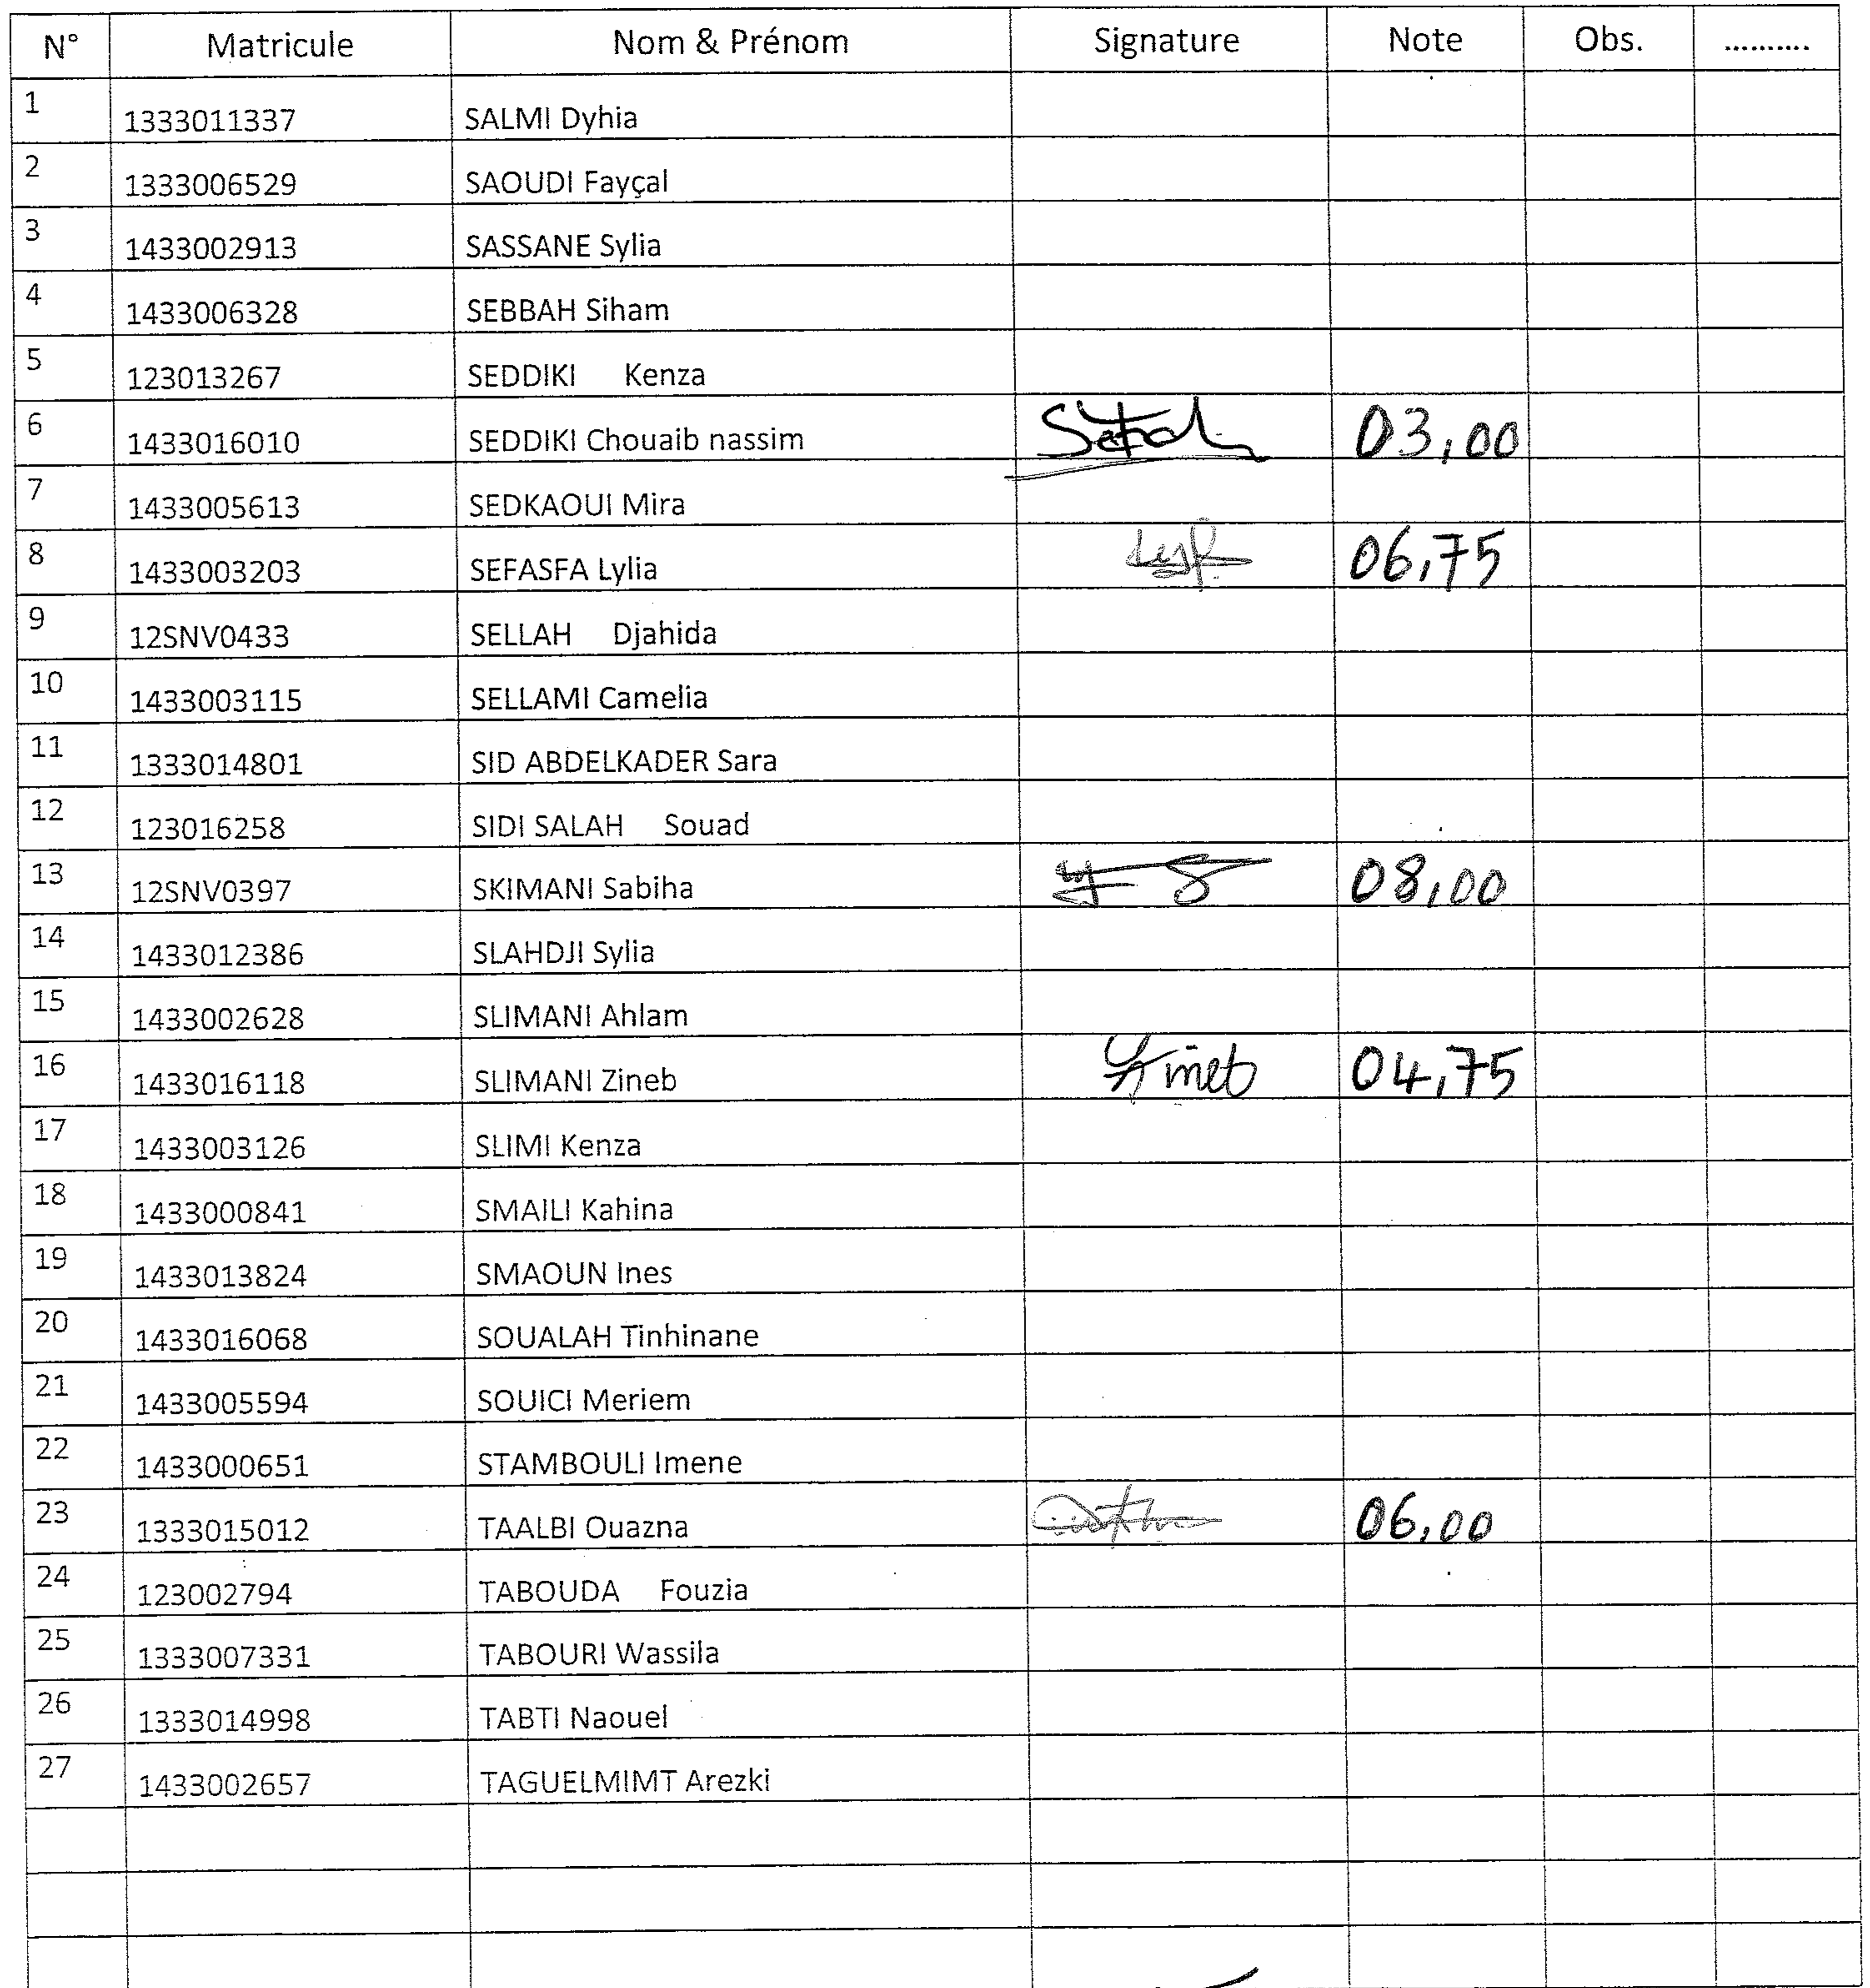 N° Matricule Nom & Prénom Signature Note Obs. ..........
1 1333011337 SALMI Dyhia
2 1333006529 SAOUDI Fayçal
3 1433002913 SASSANE Sylia
4 1433006328 SEBBAH Siham
5 123013267 SEDDIKI Kenza
6 1433016010 SEDDIKI Chouaib nassim 03,00
7 1433005613 SEDKAOUI Mira
8 1433003203 SEFASFA Lylia 06,75
9 12SNV0433 SELLAH Djahida
10 1433003115 SELLAMI Camelia
11 1333014801 SID ABDELKADER Sara
12 123016258 SIDI SALAH Souad
13 12SNV0397 SKIMANI Sabiha 08,00
14 1433012386 SLAHDJI Sylia
15 1433002628 SLIMANI Ahlam
16 1433016118 SLIMANI Zineb 04,75
17 1433003126 SLIMI Kenza
18 1433000841 SMAILI Kahina
19 1433013824 SMAOUN Ines
20 1433016068 SOUALAH Tinhinane
21 1433005594 SOUICI Meriem
22 1433000651 STAMBOULI Imene
23 1333015012 TAALBI Ouazna 06,00
24 123002794 TABOUDA Fouzia
25 1333007331 TABOURI Wassila
26 1333014998 TABTI Naouel
27 1433002657 TAGUELMIMT Arezki